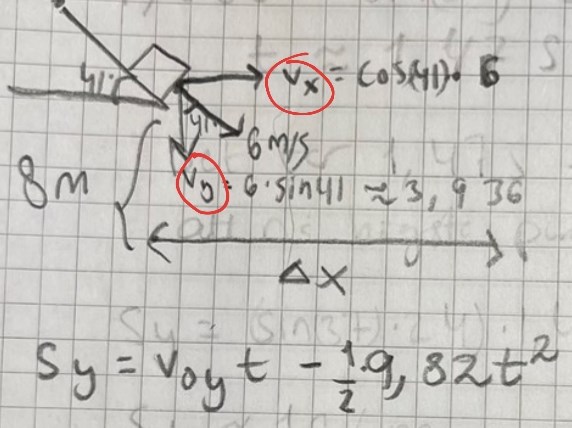 41° vx = cos(41)· 6
41
6 m/s
8m
vy = 6·sin41 ≈ 3,936
Δx
Sy = v0y t - 1/2·9,82t²